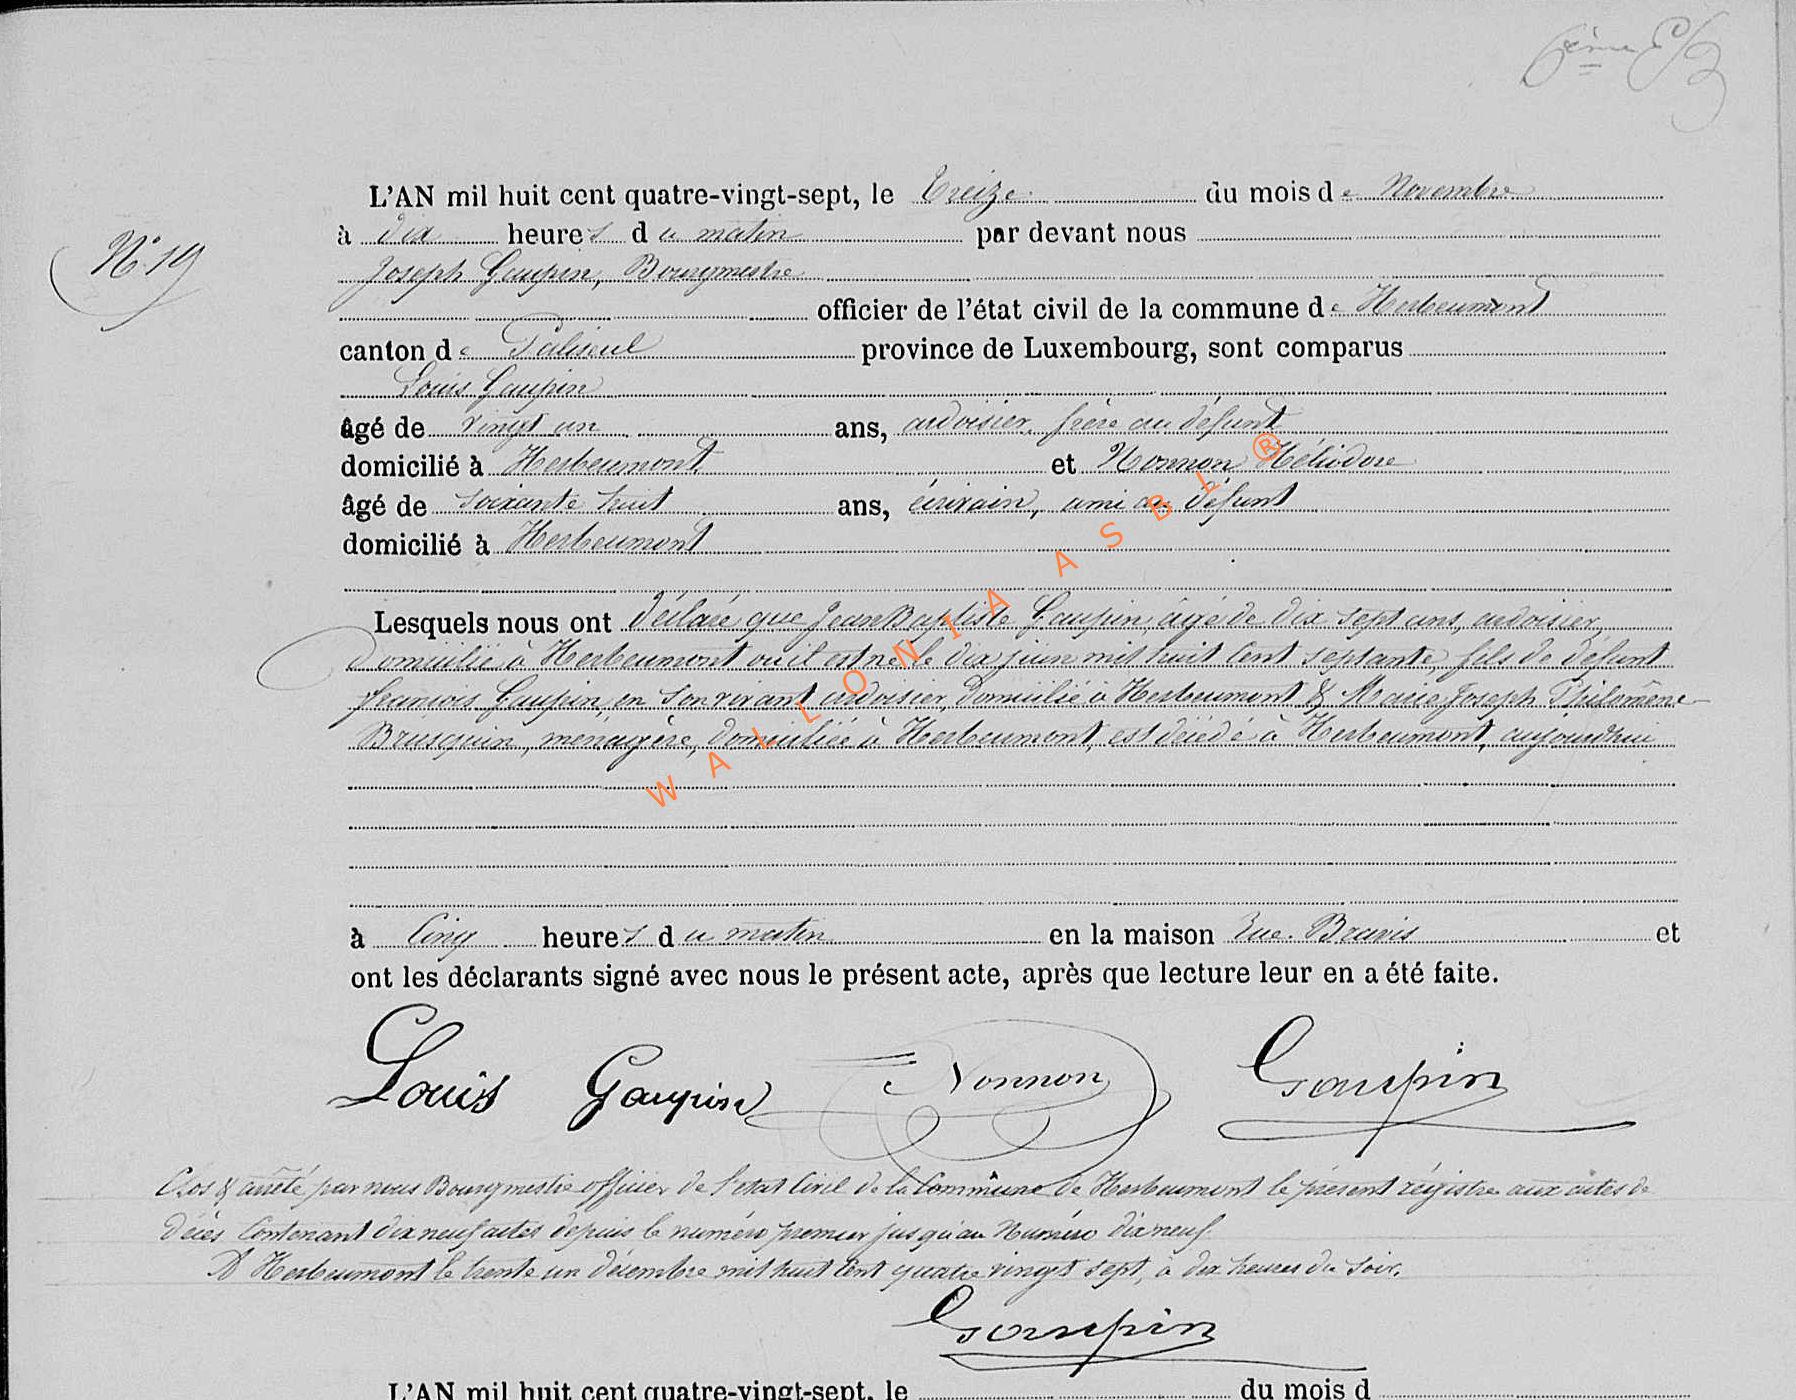 6ème
N° 19
L'AN mil huit cent quatre-vingt-sept, le Treize du mois de Novembre
à dix heures du matin par devant nous
Joseph Gaupin, Bourgmestre
officier de l'état civil de la commune de Herbeumont
canton de Paliseul province de Luxembourg, sont comparus
Louis Gaupin
âgé de vingt un ans, ardoisier, frère au défunt
domicilié à Herbeumont et Nonnon Héliodore
âgé de soixante huit ans, écrivain, ami au défunt
domicilié à Herbeumont
Lesquels nous ont déclaré que Jean Baptiste Gaupin, âgé de dix sept ans, ardoisier,
domicilié à Herbeumont où il est né le dix juin mil huit cent septante fils de défunt
François Gaupin, en son vivant ardoisier, domicilié à Herbeumont & Marie Joseph Philomène
Brusquin, ménagère, domiciliée à Herbeumont, est décédé à Herbeumont, aujourdhui
à Cinq heures du matin en la maison rue et
ont les déclarants signé avec nous le présent acte, après que lecture leur en a été faite.
Louis Gaupin Nonnon Gaupin
Clos & arrêté par nous Bourgmestre officier de l'état Civil de la Commune de Herbeumont le présent régistre aux actes de
décès Contenant dix neuf actes depuis le numéro premier jusqu'au Numéro dix neuf.
A Herbeumont le trente un décembre mil huit cent quatre vingt sept, à dix heures du soir.
Gaupin
L'AN mil huit cent quatre-vingt-sept, le du mois d
WALLONIA ASBL ®